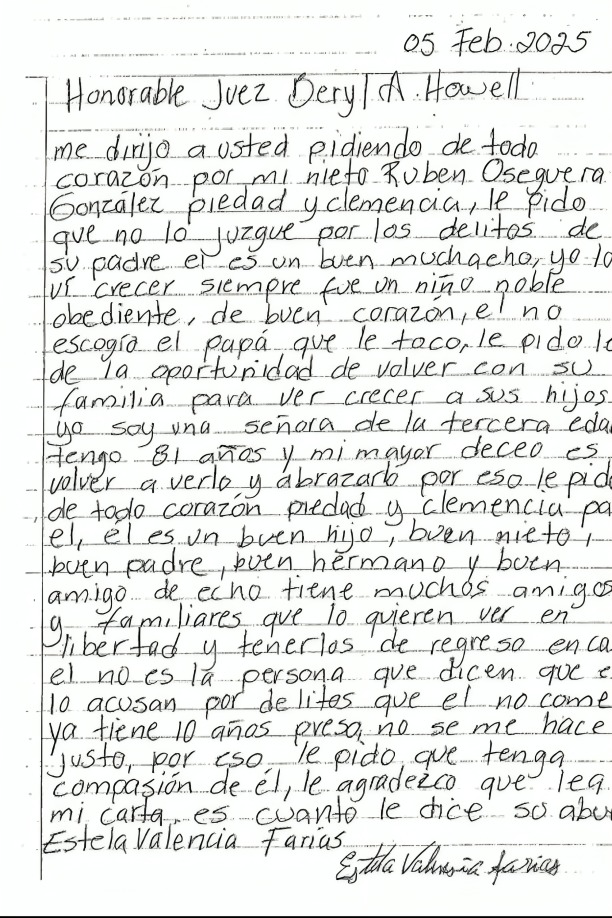 05 Feb. 2025
Honorable Juez Beryl A. Howell
me dirijo a usted pidiendo de todo
corazón por mi nieto Ruben Oseguera
González piedad y clemencia, le pido
que no lo juzgue por los delitos de
su padre el es un buen muchacho, yo lo
vi crecer siempre fue un niño noble
obediente, de buen corazón, el no
escogio el papá que le toco, le pido le
de la oportunidad de volver con su
familia para ver crecer a sus hijos
yo soy una señora de la tercera edad
tengo 81 años y mi mayor deceo es
volver a verlo y abrazarlo por eso le pido
de todo corazón piedad y clemencia pa
el, él es un buen hijo, buen nieto,
buen padre, buen hermano y buen
amigo de echo tiene muchos amigos
y familiares que lo quieren ver en
libertad y tenerlos de regreso en ca
el no es la persona que dicen que e
lo acusan por delitos que el no come
ya tiene 10 años preso, no se me hace
justo, por eso le pido que tenga
compasión de él, le agradezco que lea
mi carta, es cuanto le dice su abu
Estela Valencia Farias
Estela Valencia farias